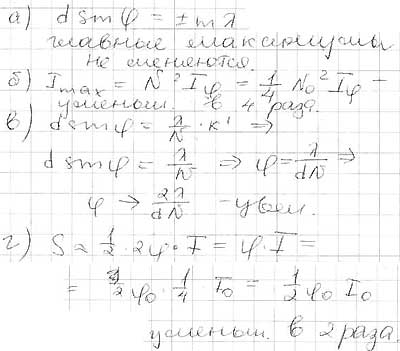 а) d sin φ = ± m λ
главные максимумы
не меняются.
б) I max = N² I φ = 1/4 N₀² I φ –
уменьш. в 4 раза.
в) d sin φ = λ/N · k' ⇒
d sin φ = λ/N ⇒ φ = λ/dN ⇒
φ → 2λ/dN – увел.
г) S ≈ 1/2 · 2φ · I = φ · I =
= 2φ₀ · 1/4 · I₀ = 1/2 φ₀ I₀
уменьш. в 2 раза.